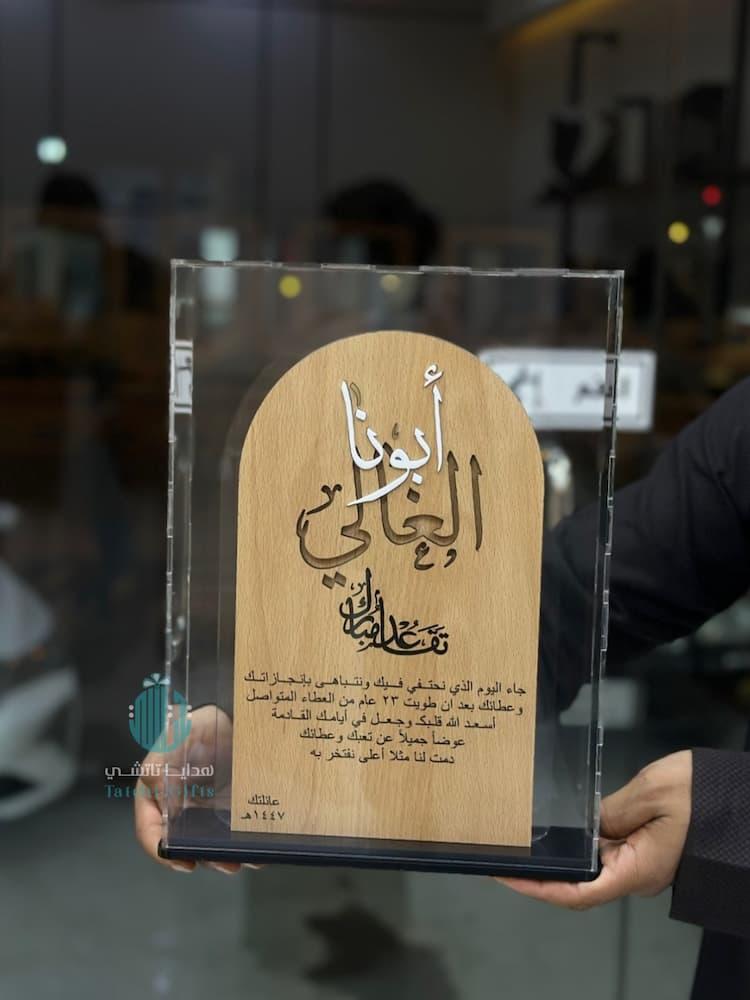 أبونا
الغالي
تقاعدًا مبارك
جاء اليوم الذي نحتفي فيك ونتباهى بإنجازاتك
وعطائك بعد ان طويت ٢٣ عام من العطاء المتواصل
أسعد الله قلبك وجعل في أيامك القادمة
عوضاً جميلاً عن تعبك وعطائك
دمت لنا مثلا أعلى نفتخر به
عائلتك
١٤٤٧هـ
هدايا تاتشي
Gifts